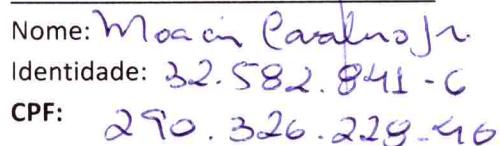 Nome: Moacir Cavalero Jr.
Identidade: 32.582.841-6
CPF: 290.326.228-40